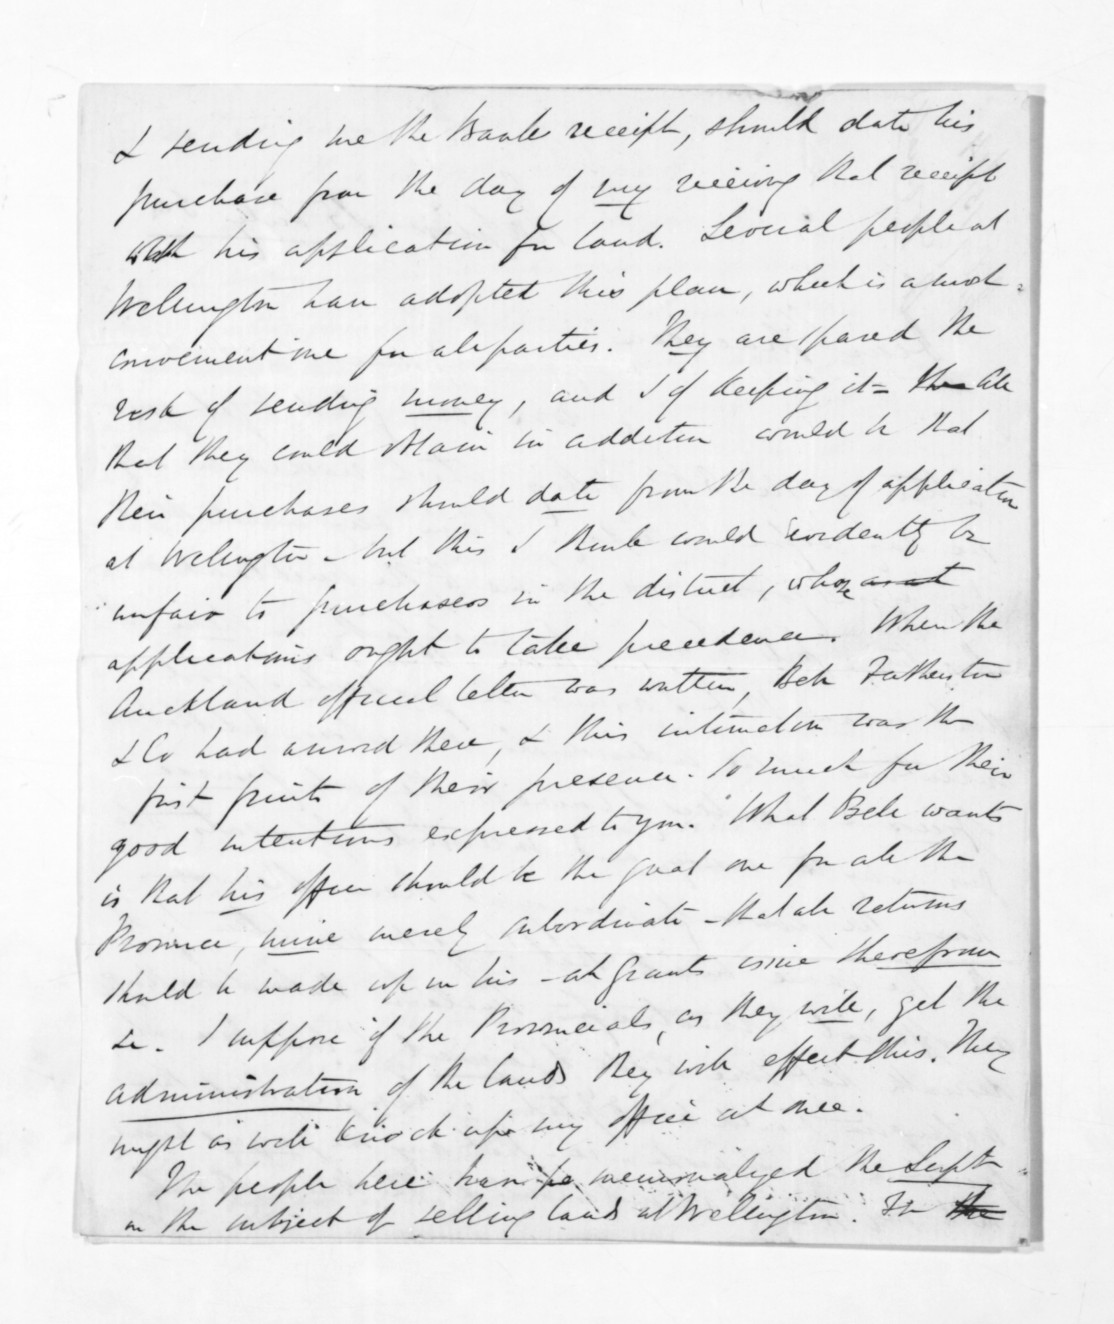 & sending me the Bank receipt, should date his
purchase from the day of my receiving that receipt
with his application for land. Several people at
Wellington have adopted this plan, which is a most
convenient one for all parties. They are spared the
risk of sending money, and I of keeping it – the All
that they could obtain in addition would be that
their purchases should date from the day of application
at Wellington – but this I think would evidently be
unfair to purchasers in the district, whose as at
applications ought to take precedence. When the
Auckland official letter was written, Bell Fatherston
& Co had arrived there, & this intimation was the
first fruits of their presence. So much for their
good intentions expressed to you. What Bell wants
is that his office should be the great one for all the
Province, mine merely subordinate – that all returns
should be made up in his – all grants issue therefrom
&c. I suppose if the Provincials, as they will, get the
administration of the lands they will effect this. They
might as well knock up my office at once.
The people here have memorialized the Supt
on the subject of selling lands at Wellington. In the